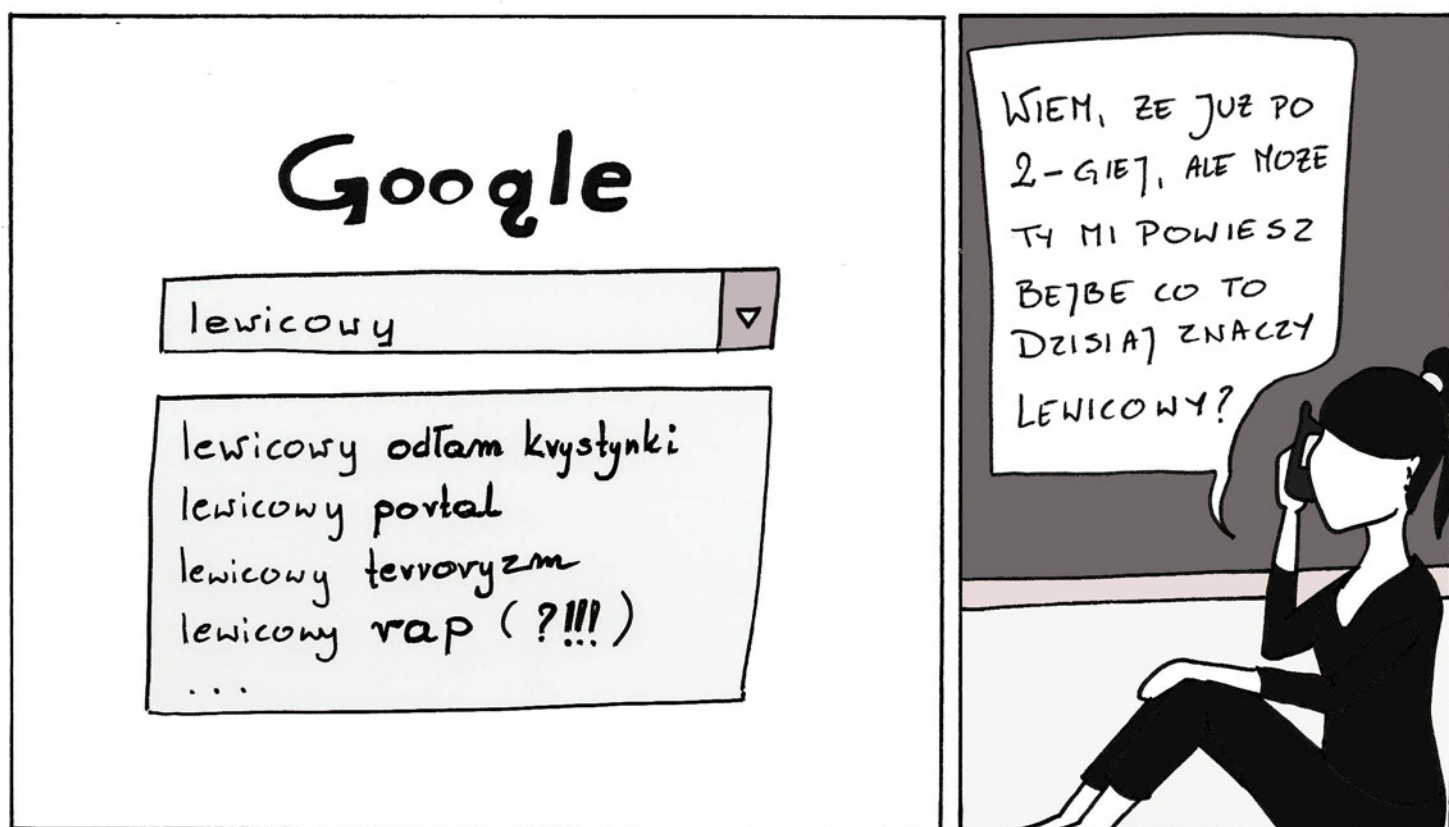 Google
lewicowy
lewicowy odłam krystynki
lewicowy portal
lewicowy terroryzm
lewicowy rap (?!!!)
...
WIEM, ZE JUZ PO
2-GIEJ, ALE MOZE
TY MI POWIESZ
BEJBE CO TO
DZISIAJ ZNACZY
LEWICOWY?